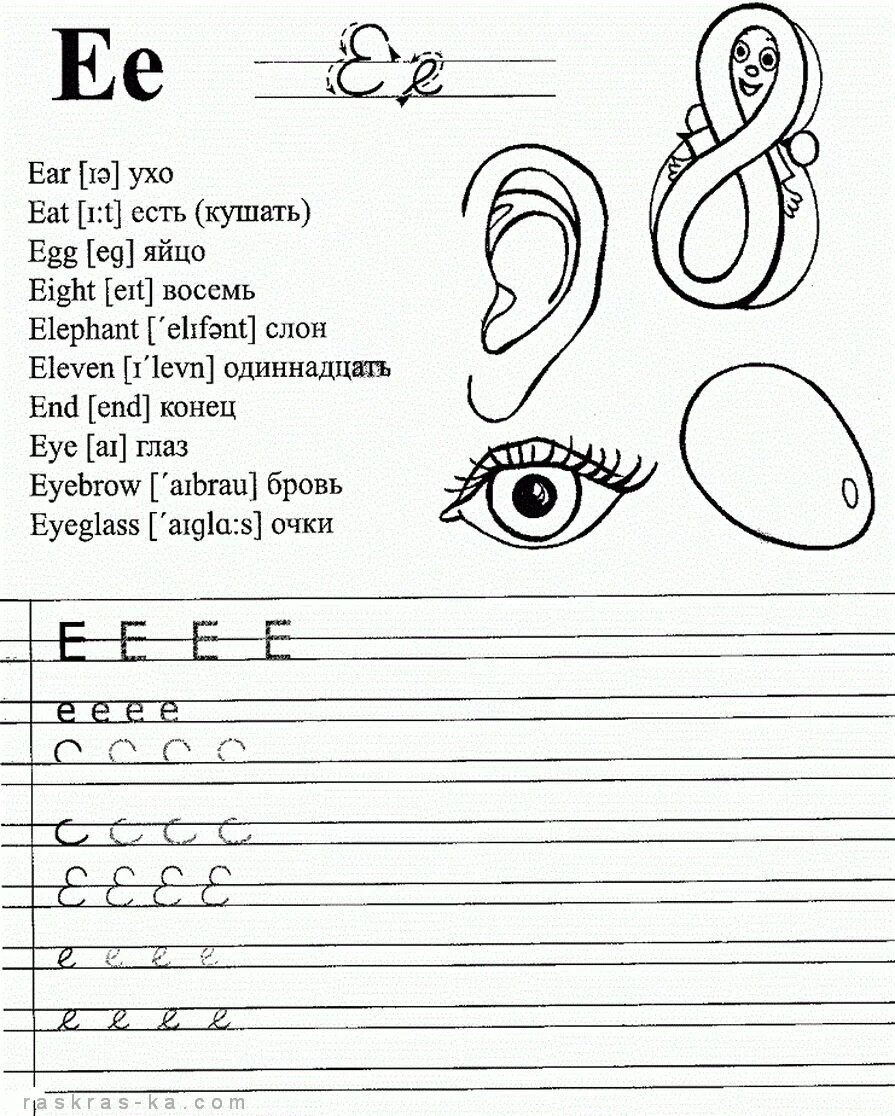 Ee
Ee
Ear [ɪə] ухо
Eat [ɪ:t] есть (кушать)
Egg [eg] яйцо
Eight [eɪt] восемь
Elephant [´elɪfənt] слон
Eleven [ɪ´levn] одиннадцать
End [end] конец
Eye [aɪ] глаз
Eyebrow [´aɪbrau] бровь
Eyeglass [´aɪglɑ:s] очки
E E E E
e e e e
E E E E
e e e e
e e e e
raskras-ka.com